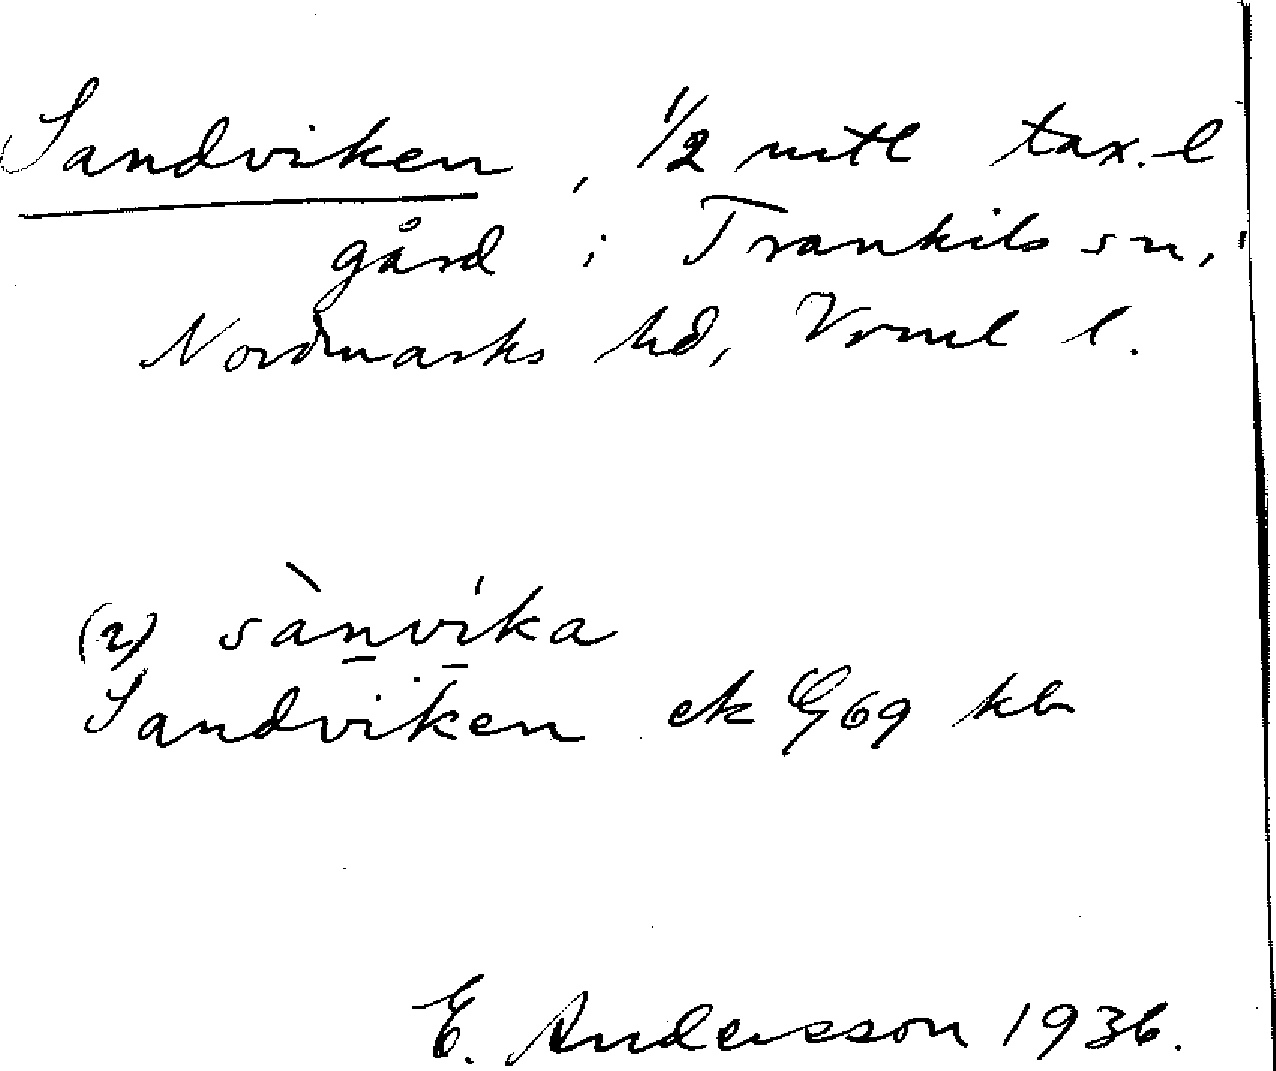 Sandviken, 1/2 mtl tax.-l
gård i Trankils sn,
Nordmarks hd, Vrml l.
(2) sànvíka
Sandviken ek 69 kb
E. Andersson 1936.